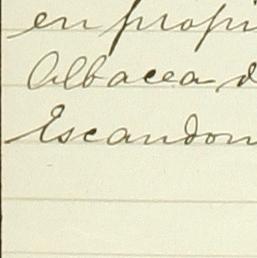 en propi
Albacea d
Escandon